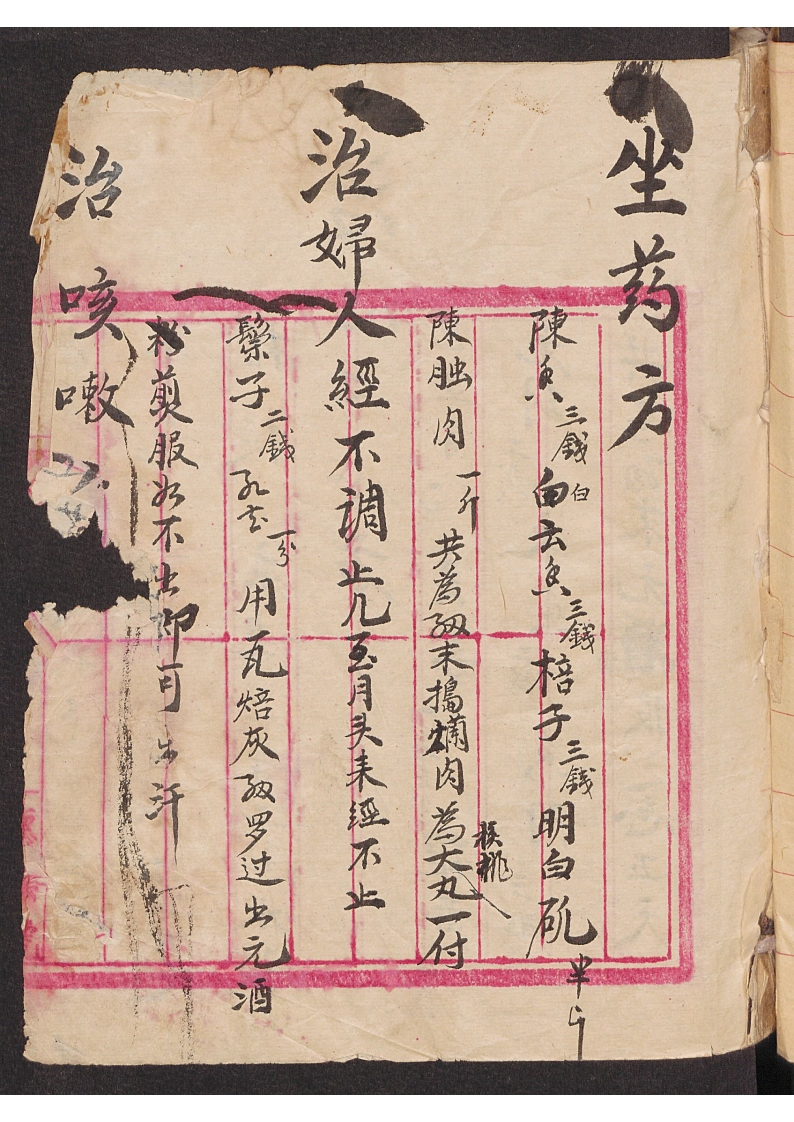 坐药方
陳香三錢白云香三錢棓子三錢明白矾半斤
白
陳肉一斤共為細末搗爛肉為大丸一付
核桃
治婦人經不調止几至月头来經不止
子二錢孔一分用瓦焙灰細罗过出元酒
煎服必不出即可出汗
治咳嗽